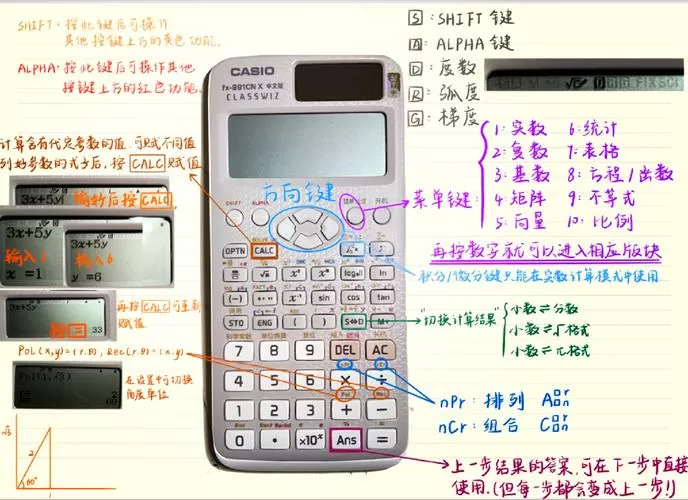 SHIFT: 按此键后可操作
其他按键上方的黄色功能.
ALPHA: 按此键后可操作其他
按键上方的红色功能.
计算含有代定参数的值,可赋不同值
列好参数的式子后,按 CALC 赋值
3x+5y
输好后按 CALC
3x+5y
输入1
x =1
3x+5y
输入6
y =6
3x+5y
33
再按 CALC 可重新
赋值
Pol(x,y)=(r.θ), Rec(r.θ)=(x.y)
Pol(1,√3)
在设置中可切换
角度单位
√3
2
60°
1
CASIO
fx-991CN X 中文版
CLASSWIZ
方向键
SHIFT
ALPHA
菜单
开机
OPTN
CALC
sin
cos
tan
STO
ENG
(
)
S⇔D
M+
7
8
9
DEL
AC
4
5
6
×
÷
1
2
3
+
−
0
•
×10ˣ
Ans
=
S: SHIFT 键
A: ALPHA 键
D: 度数
R: 弧度
G: 梯度
FIX SCI
菜单键:
1: 实数 6: 统计
2: 复数 7: 表格
3: 基数 8: 方程/函数
4: 矩阵 9: 不等式
5: 向量 10: 比例
再按数字就可以进入相应版块
积分/微分键只能在实数计算模式中使用
"切换计算结果"
小数⇌分数
小数⇌√格式
小数⇌π格式
nPr: 排列
nCr: 组合
上一步结果的答案,可在下一步中直接
使用.(但每一步都会变成上一步!)